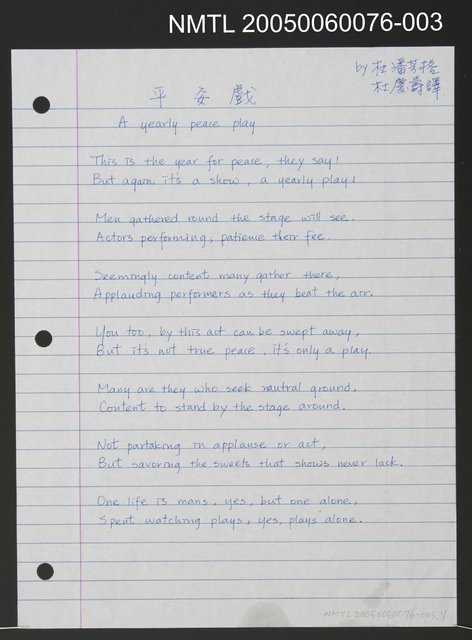 NMTL 20050060076-003
by 杜潘芳格
杜慶壽譯
平安戲
A yearly peace play
This is the year for peace, they say!
But again it's a show, a yearly play!
Men gathered round the stage will see.
Actors performing; patience their fee.
Seemingly content many gather there,
Applauding performers as they beat the air.
You too, by this act can be swept away,
But it's not true peace, it's only a play.
Many are they who seek nautral ground,
Content to stand by the stage around.
Not partaking in applause or act,
But savoring the sweets that shows never lack.
One life is mans, yes, but one alone,
Spent watching plays, yes, plays alone.
NMTL20050060076-003 1/1